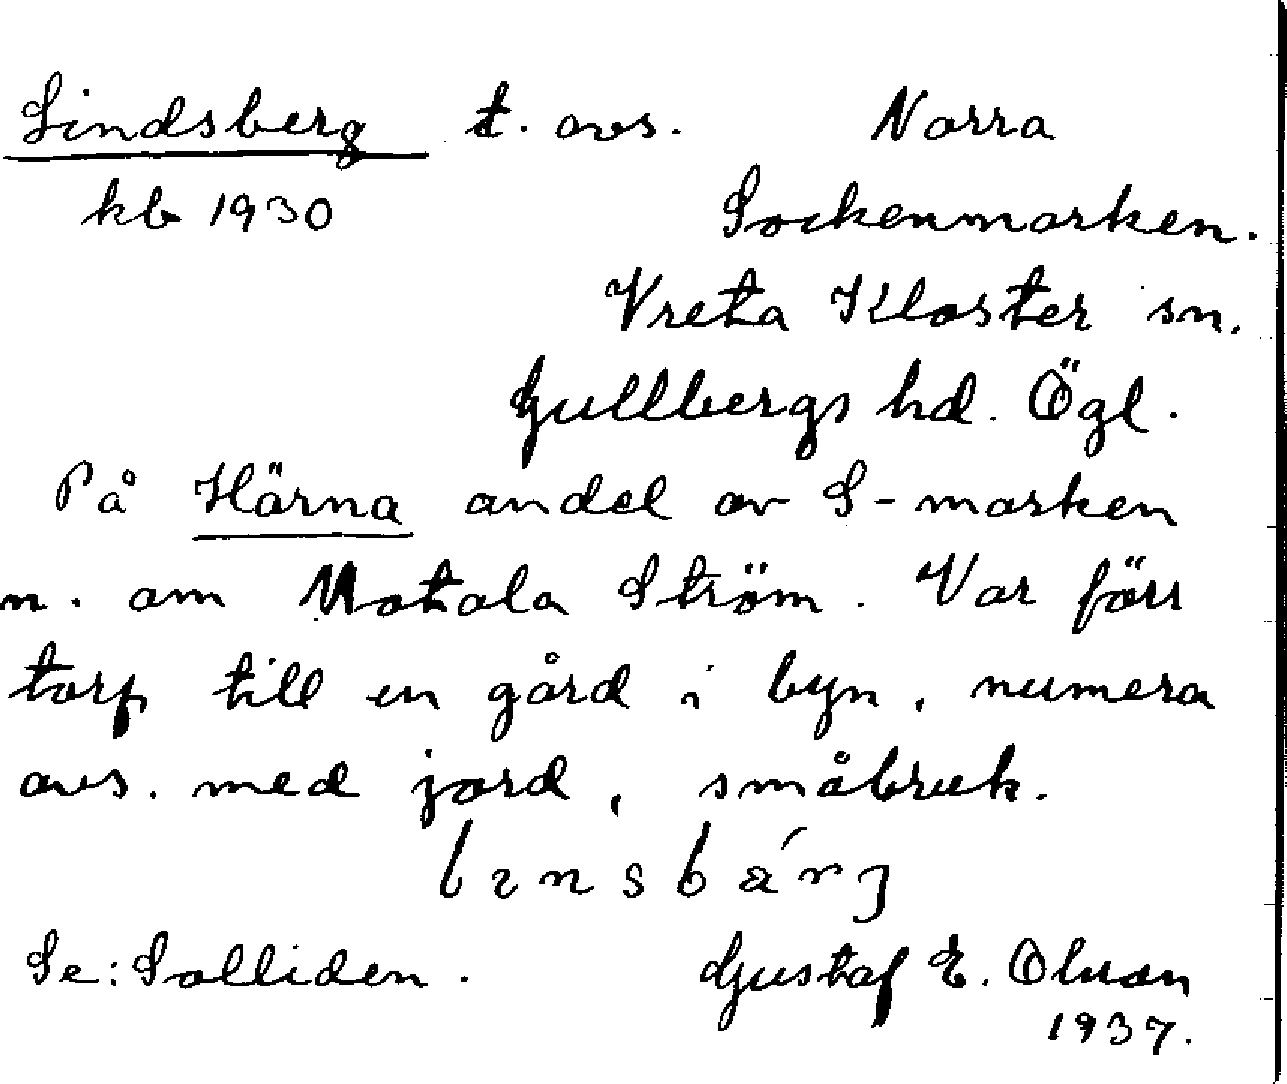 Lindsberg t. avs. Norra
kb 1930 Sockenmarken.
Vreta Kloster sn.
Gullbergs hd. Ögl.
På Härna andel av S-marken
n. om Motala Ström. Var förr
torp till en gård i byn, numera
avs. med jord, småbruk.
linsbärj
Se: Solliden. Gustaf E. Olsson
1937.